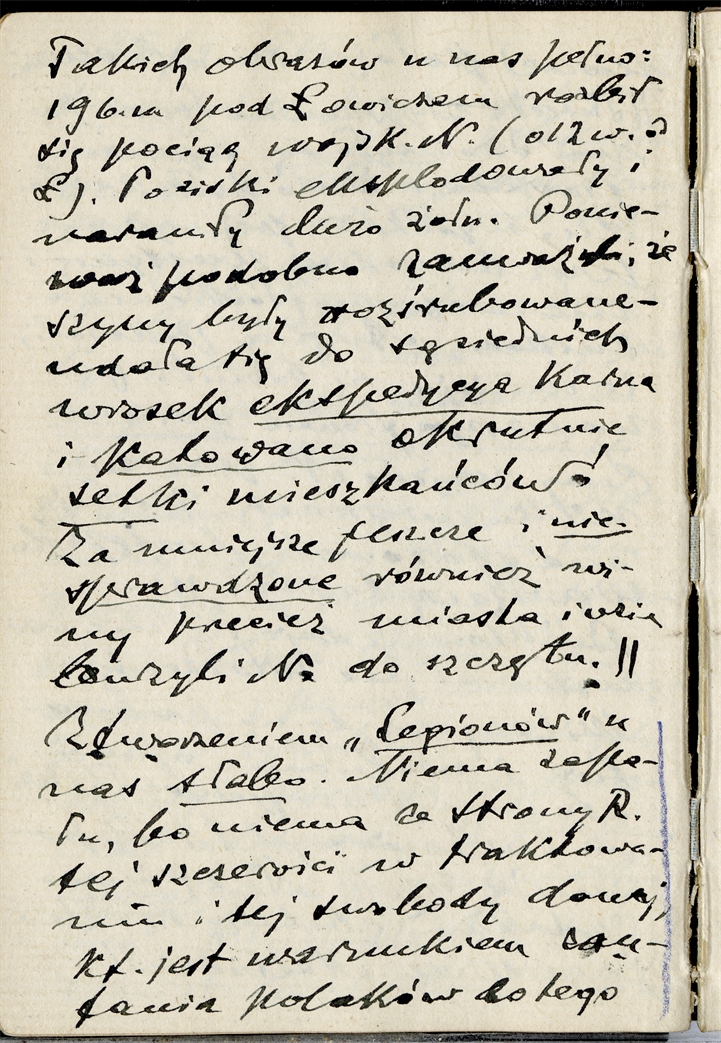 Takich obrazów u nas pełno:
19 b.m pod Łowiczem rozbił
się pociąg wojsk. N. (
Ł). Pociski eksplodowały i
naraniły dużo żołn. Ponie-
waż podobno zauważyli, że
szyny były rozśrubowane-
udała się do sąsiednich
wiosek ekspedycya karna
i katowano okrutnie
setki mieszkańców!
Za mniejsze jeszcze i nie-
sprawdzone również wi-
ny przecież miasta i wsie
burzyli N. do szczętu. ||
Z tworzeniem „Legionów" u
nas słabo. Niema zapa-
łu, bo niema ze strony R.
tej szczerości w traktowa-
niu i tej swobody danej,
kt. jest warunkiem zau-
fania Polaków do tego